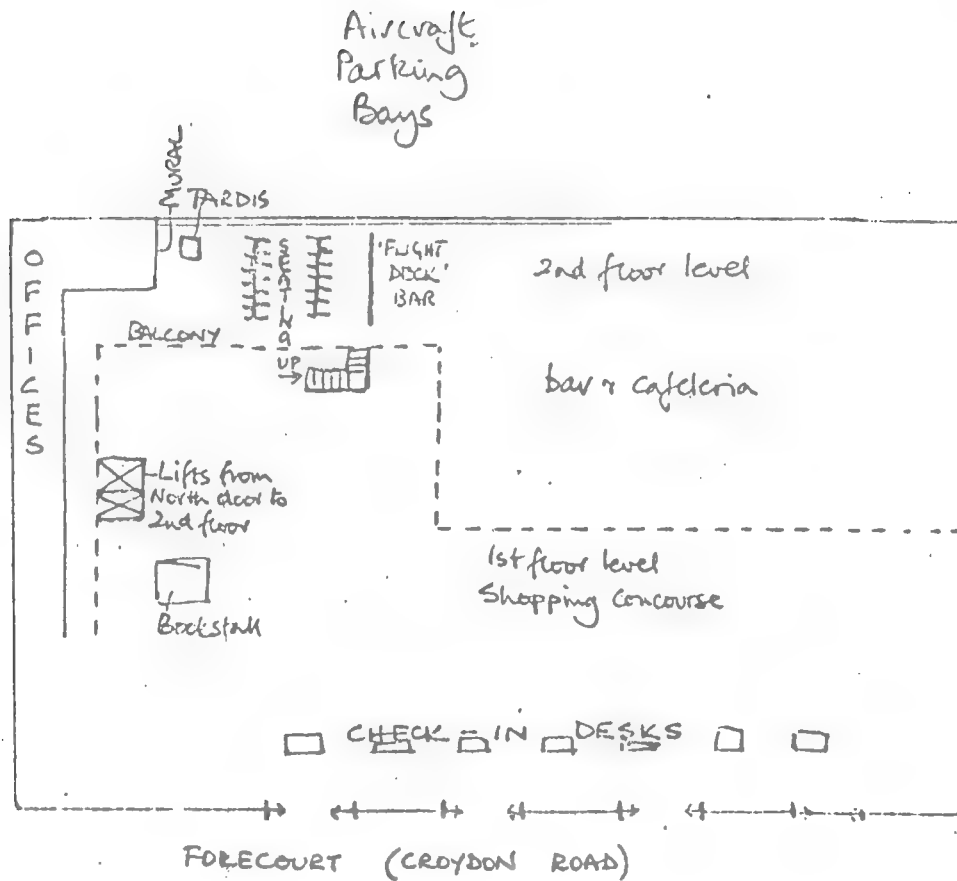 Aircraft
Parking
Bays
MURAL
TARDIS
OFFICES
SEATING
'FLIGHT
DECK'
BAR
2nd floor level
BALCONY
UP
bar & cafeteria
Lifts from
North door to
2nd floor
1st floor level
Shopping concourse
Bookstall
CHECK-IN DESKS
FORECOURT (CROYDON ROAD)